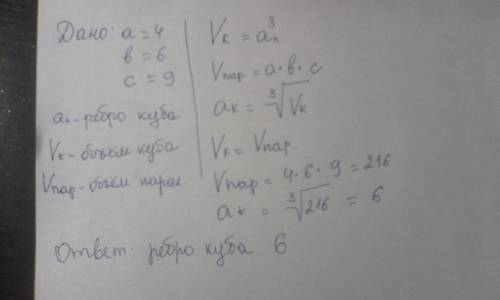 Дано: a = 4
в = 6
c = 9
aк - ребро куба
Vк - объём куба
Vпар - объём парал.
Vк = aк³
Vпар. = a · в · c
aк = ³√Vк
Vк = Vпар.
Vпар = 4 · 6 · 9 = 216
aк = ³√216 = 6
Ответ: ребро куба 6